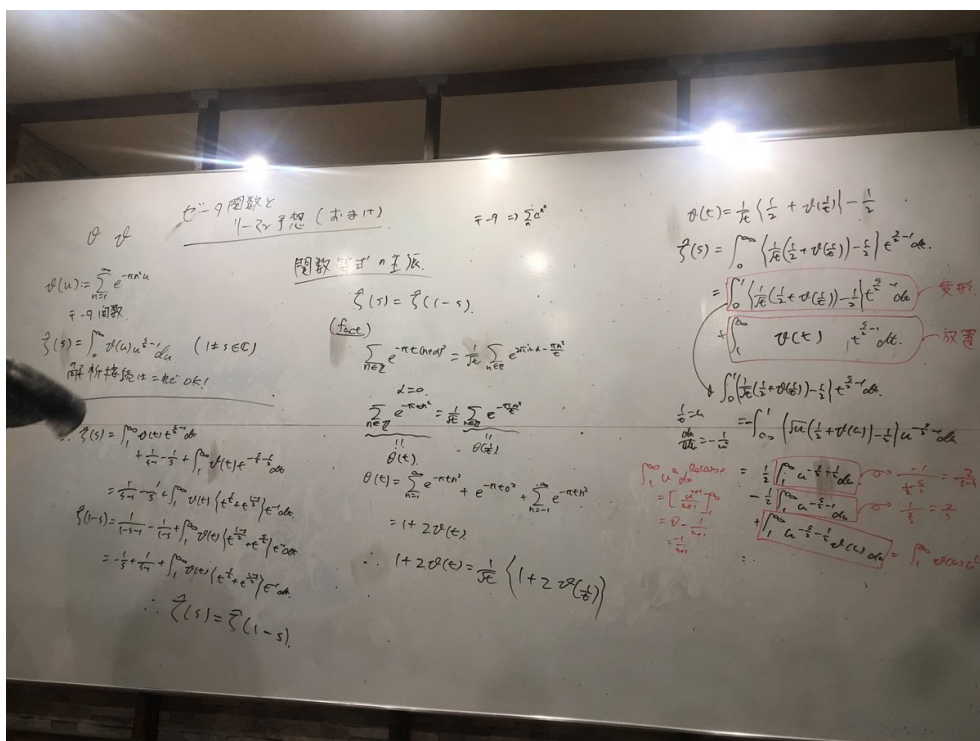 ゼータ関数と
リーマン予想 (おまけ)
θ ϑ
ϑ(u):=∑_{n=1}^{∞} e^{-πn²u}
テータ関数
ζ̂(s)=∫_0^∞ ϑ(u)u^{s/2-1}du (1≠s∈ℂ)
∴ ζ̂(s)=∫_1^∞ ϑ(t)t^{s/2-1}dt
+1/(s-1)-1/s+∫_1^∞ ϑ(t)t^{-s/2-1/2}dt
=1/(s-1)-1/s+∫_1^∞ ϑ(t){t^{s/2}+t^{(1-s)/2}}t^{-1}dt
ζ̂(1-s)=1/(1-s-1)-1/(1-s)+∫_1^∞ ϑ(t){t^{(1-s)/2}+t^{s/2}}t^{-1}dt
=-1/s+1/(s-1)+∫_1^∞ ϑ(t){t^{s/2}+t^{(1-s)/2}}t^{-1}dt
∴ ζ̂(s)=ζ̂(1-s).
関数等式
ζ̂(s)=ζ̂(1-s).
(fact)
∑_{n∈ℤ} e^{-πt(n+α)²}=1/√t ∑_{n∈ℤ}
α=0.
∑_{n∈ℤ} e^{-πtn²}=1/√t ∑_{n∈ℤ} e^{-πn²/t}
θ(t). θ(1/t).
θ(t)=∑_{n=1}^{∞} e^{-πtn²}+e^{-πt0²}+∑_{n=-1}^{-∞} e^{-πtn²}
=1+2ϑ(t).
∴ 1+2ϑ(t)=1/√t {1+2ϑ(1/t)}
ϑ(t)=1/√t {1/2+ϑ(1/t)}-1/2
ζ̂(s)=∫_0^∞ {1/√t(1/2+ϑ(1/t))-1/2}t^{s/2-1}dt.
=∫_0^1 {1/√t(1/2+ϑ(1/t))-1/2}t^{s/2-1}dt 変形
+∫_1^∞ ϑ(t) t^{s/2-1}dt. 放置
∫_0^1 {1/√t(1/2+ϑ(1/t))-1/2}t^{s/2-1}dt.
1/t=u
=-∫_∞^1 {√u(1/2+ϑ(u))-1/2}u^{-s/2-1}du
=1/2∫_1^∞ u^{-s/2-1/2}du
-1/2∫_1^∞ u^{-s/2-1}du
+∫_1^∞ u^{-s/2-1/2}ϑ(u)du
∫_1^∞ u^a du
=[u^{a+1}/(a+1)]_1^∞
=0-1/(a+1)
=-1/(a+1)